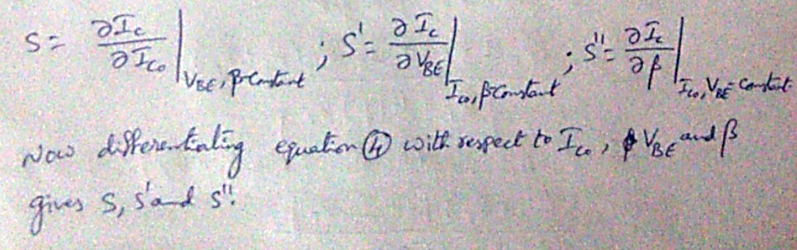 S = ∂Ic/∂Ico | VBE, β-Constant ; S' = ∂Ic/∂VBE | Ico, β-Constant ; S'' = ∂Ic/∂β | Ico, VBE-Constant.
Now differentiating equation ④ with respect to Ico, VBE and β
gives S, S' and S''.